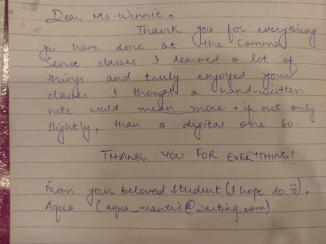 Dear Ms. Winnie,
Thank you for everything
you have done at the Comma
Cence classes. I learned a lot of
things and truly enjoyed your
classes. I thought a hand-written
note would mean more, if not only
slightly, than a digital one so
THANK YOU FOR EVERYTHING!
From your beloved student (I hope so ☺),
Aqua (aqua_mantis@writing.com)